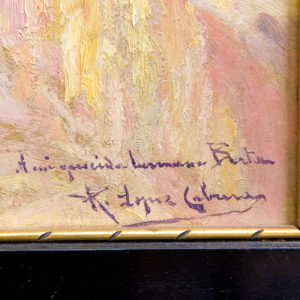 A mi querida hermana Berta
R. López Cabrera